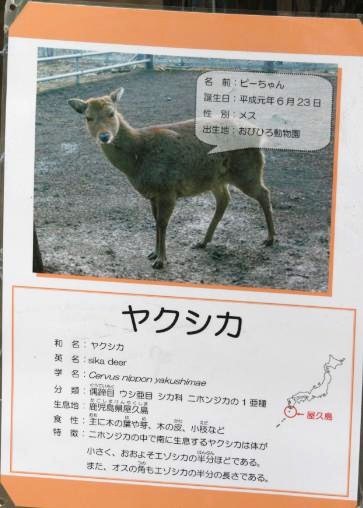 名　前：ピーちゃん
誕生日：平成元年６月２３日
性　別：メス
出生地：おびひろ動物園
ヤクシカ
和　名：ヤクシカ
英　名：sika deer
学　名：Cervus nippon yakushimae
分　類：偶蹄目 ウシ亜目 シカ科 ニホンジカの１亜種
生息地：鹿児島県屋久島
食　性：主に木の葉や芽、木の皮、小枝など
特　徴：ニホンジカの中で南に生息するヤクシカは体が
小さく、おおよそエゾシカの半分ほどである。
また、オスの角もエゾシカの半分の長さである。
屋久島